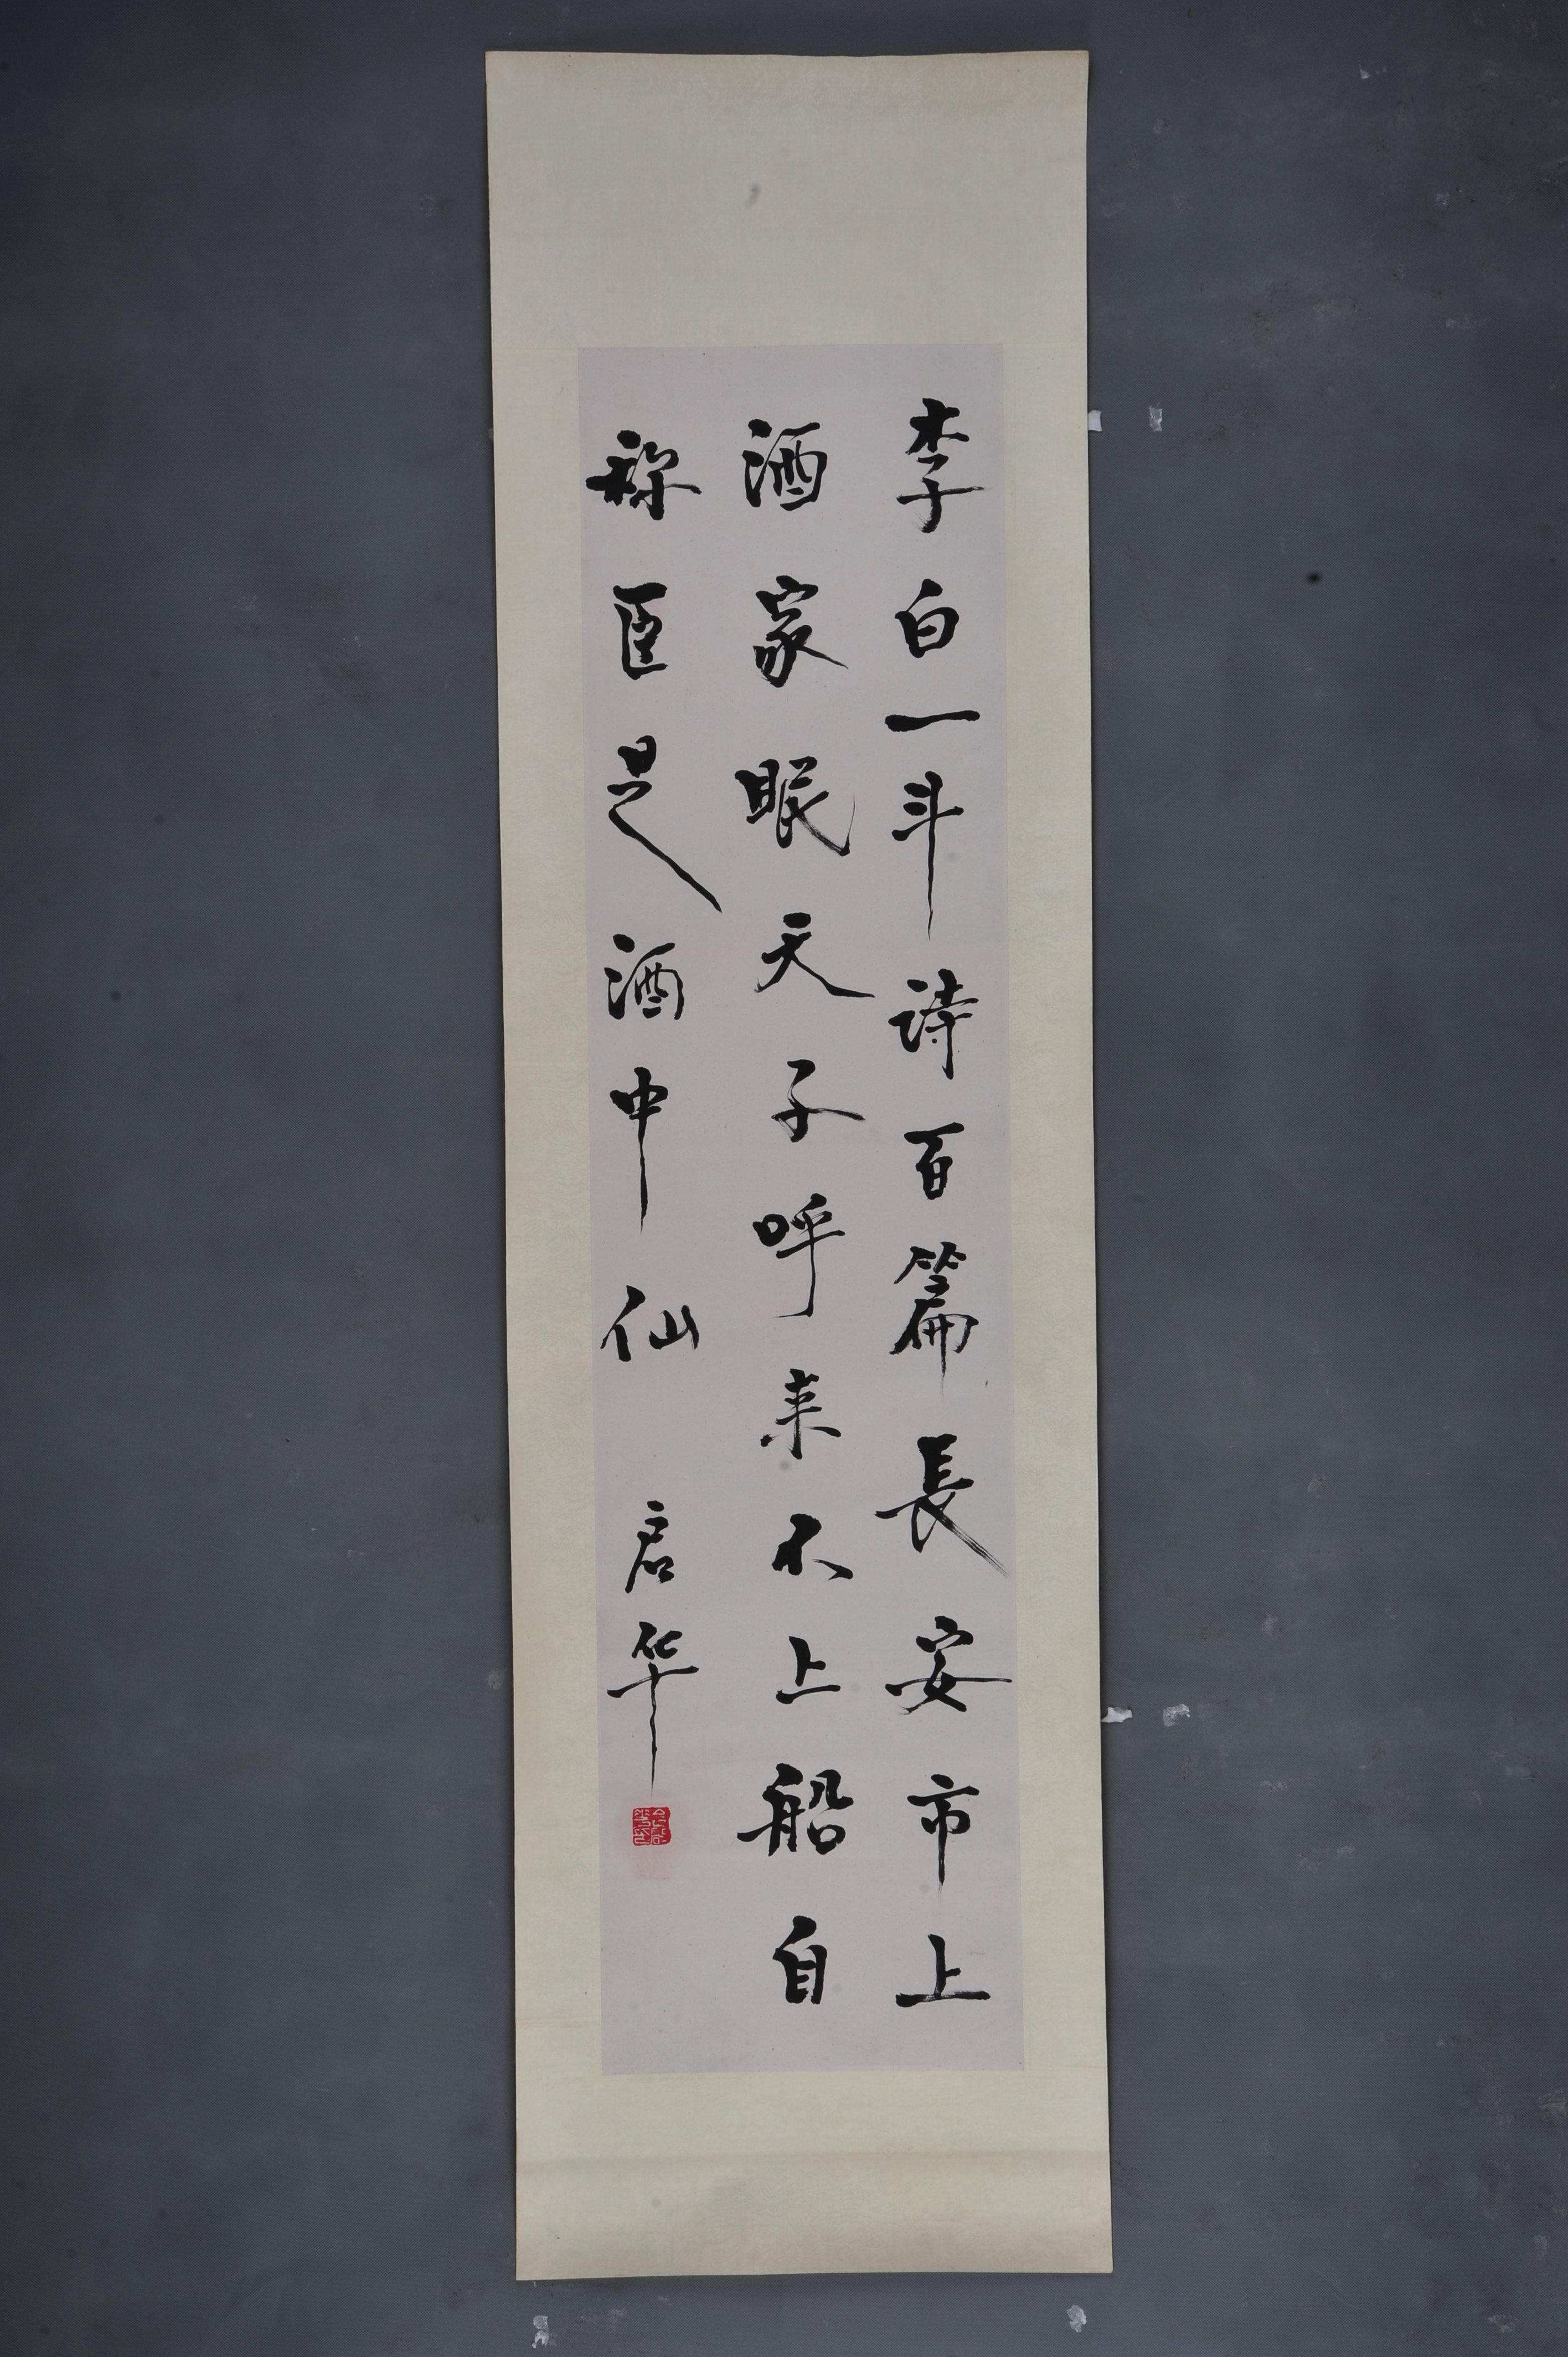 李白一斗诗百篇長安市上
酒家眠天子呼来不上船自
称臣是酒中仙
启华